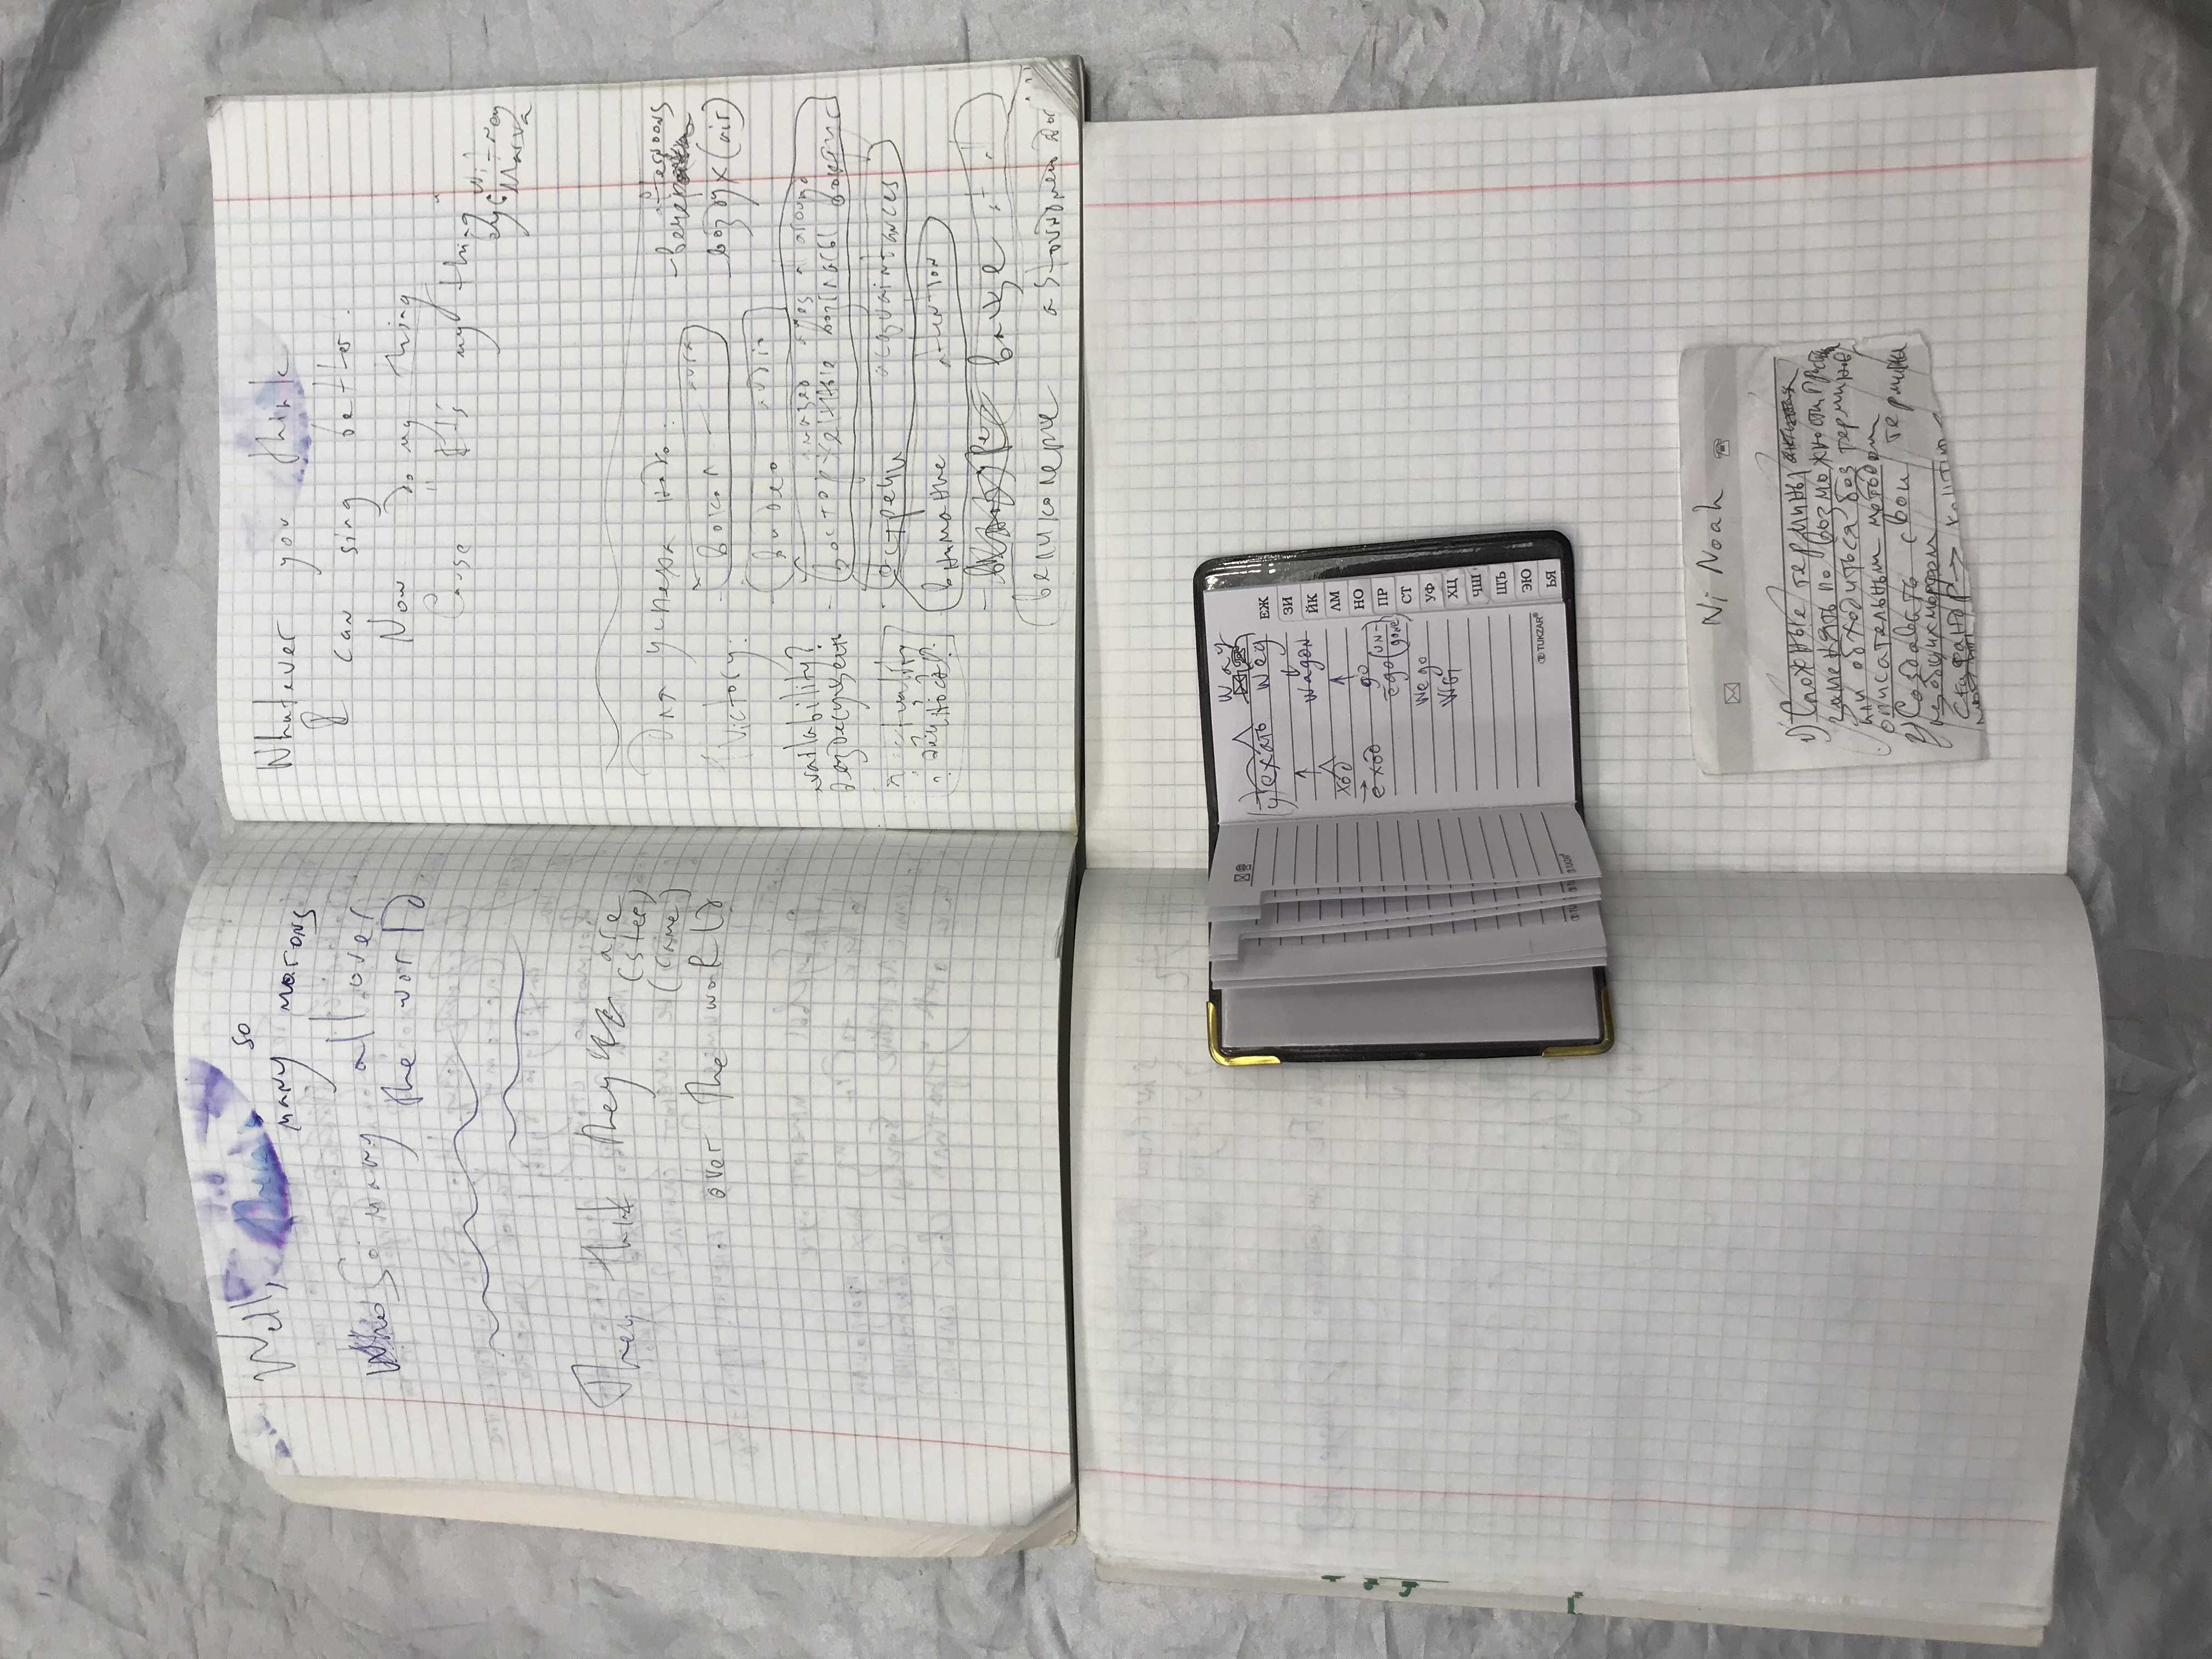 Well, there's so
many morons
So many all over
the world
They think they are
(steer)
(came)
over the world
Whatever you think
I can sing better.
Now do my thing
Cause "It's my thing"
Marva
Для успеха надо:
Victory:
- вокал - aura
- видео audio
amazed
- восторженные возгласы вокруг
- встречи acquaintances
внимание attention
ваще
великолепие
afternoons
- вечер
- воздух (air)
availability?
вездесущесть
Way
(у)ехать weg
wagon
ход
go
е ход
ego (un-gone)
we go
WG
ЕЖ
ЗИ
ЙК
ЛМ
НО
ПР
СТ
УФ
ХЦ
ЧШ
ЩЪ
ЭЮ
ЬЯ
TUKZAR®
Ni Noah
1) Сложные термины
заменять по возможности
или обходиться без терминов
описательным методом
2) Создавать свои термины
из общих морфем
Скафандр →